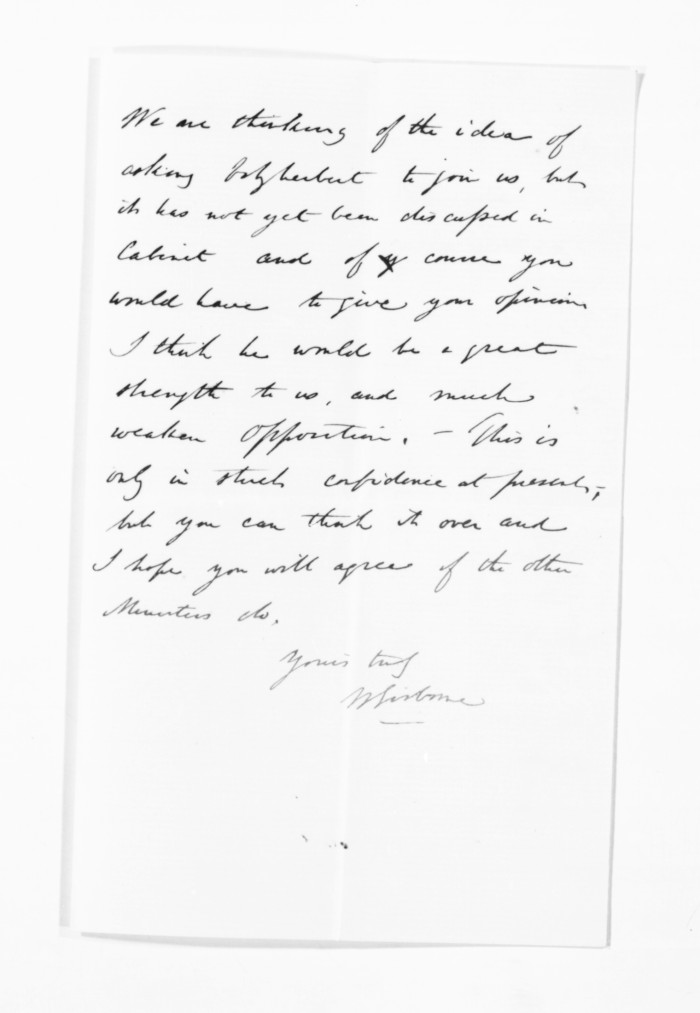 We are thinking of the idea of
asking Fitzherbert to join us, but
it has not yet been discussed in
Cabinet and of course you
would have to give your opinion
I think he would be a great
strength to us, and much
weaken opposition. - This is
only in strict confidence at present,
but you can think it over and
I hope you will agree if the other
Ministers do.
Yours truly
W Gisborne